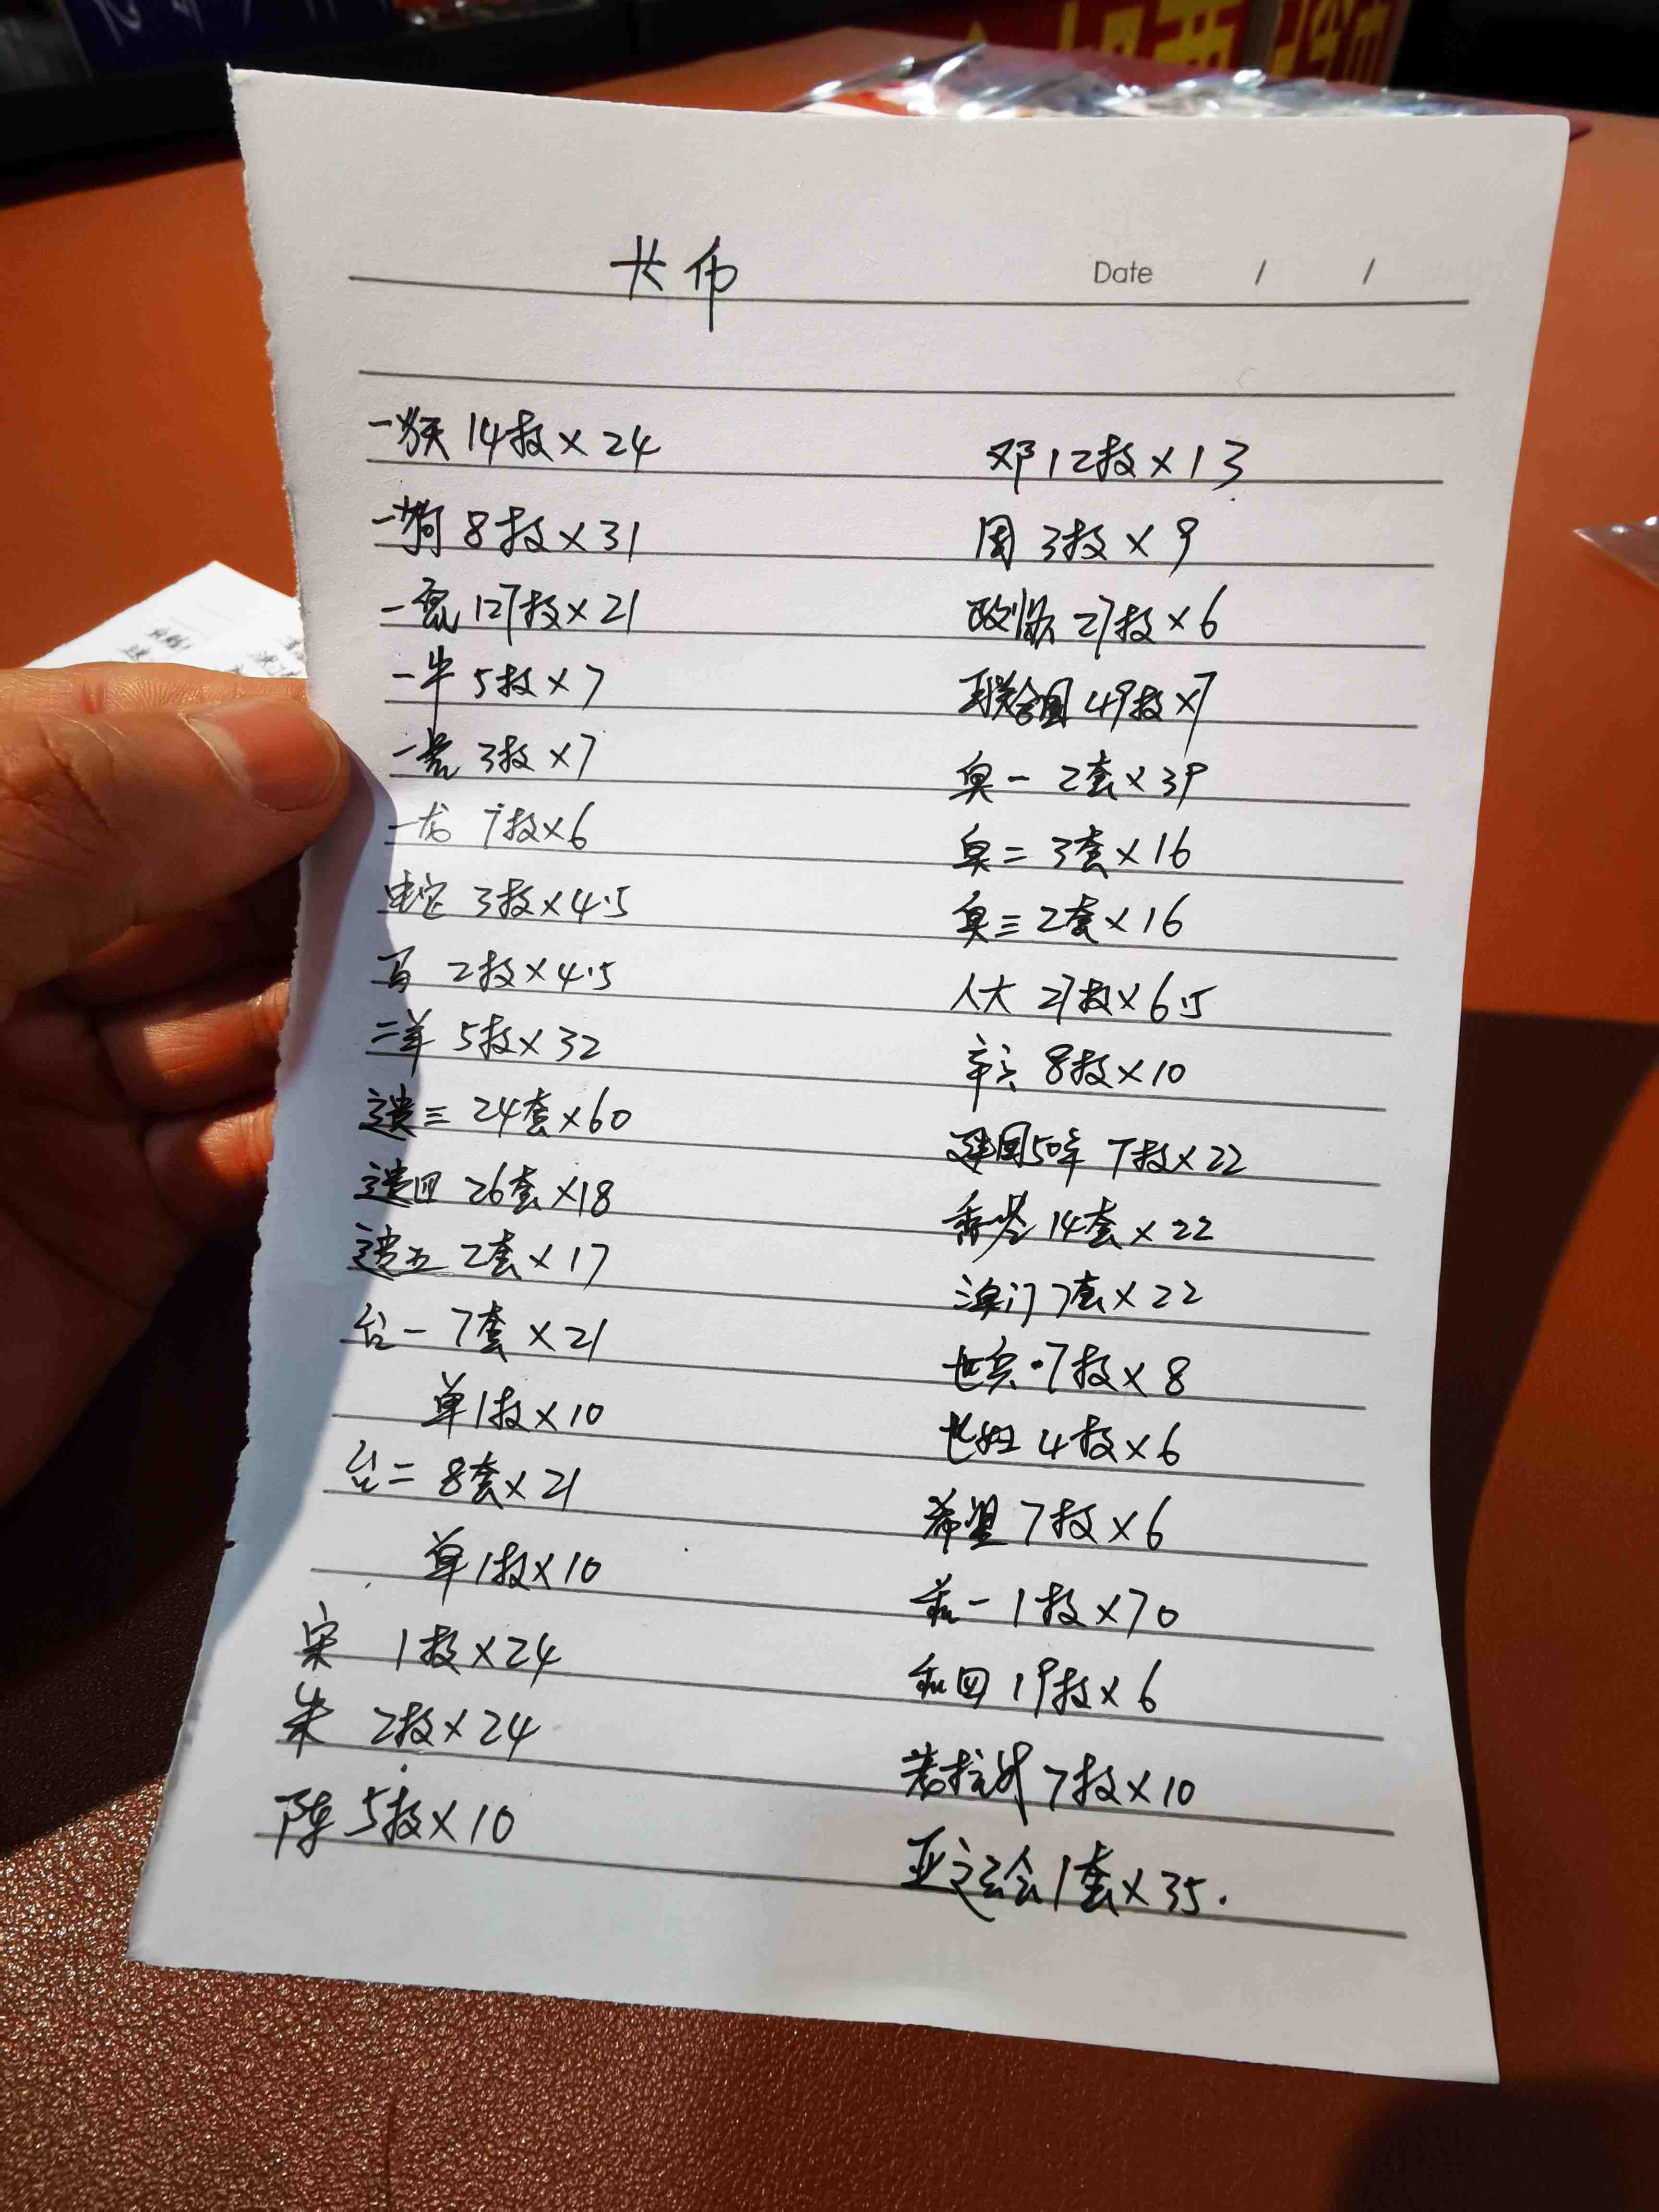 共币
Date / /
一猴 14枚×24
一狗 8枚×31
一鼠 127枚×21
一牛 5枚×7
一虎 3枚×7
一龙 7枚×6
蛇 3枚×4.5
马 2枚×4.5
二羊 5枚×32
遗三 24套×60
遗四 26套×18
遗五 2套×17
台一 7套×21
单1枚×10
台二 8套×21
单1枚×10
宋 1枚×24
朱 2枚×24
陈 5枚×10
邓12枚×13
周 3枚×9
政协 27枚×6
联合国 49枚×7
奥一 2套×39
奥二 3套×16
奥三 2套×16
人大 27枚×6.5
辛亥 8枚×10
建国50年 7枚×22
香港 14套×22
澳门 7套×22
7枚×8
世妇 4枚×6
希望 7枚×6
和一 1枚×70
和四 19枚×6
7枚×10
亚运会1套×35.